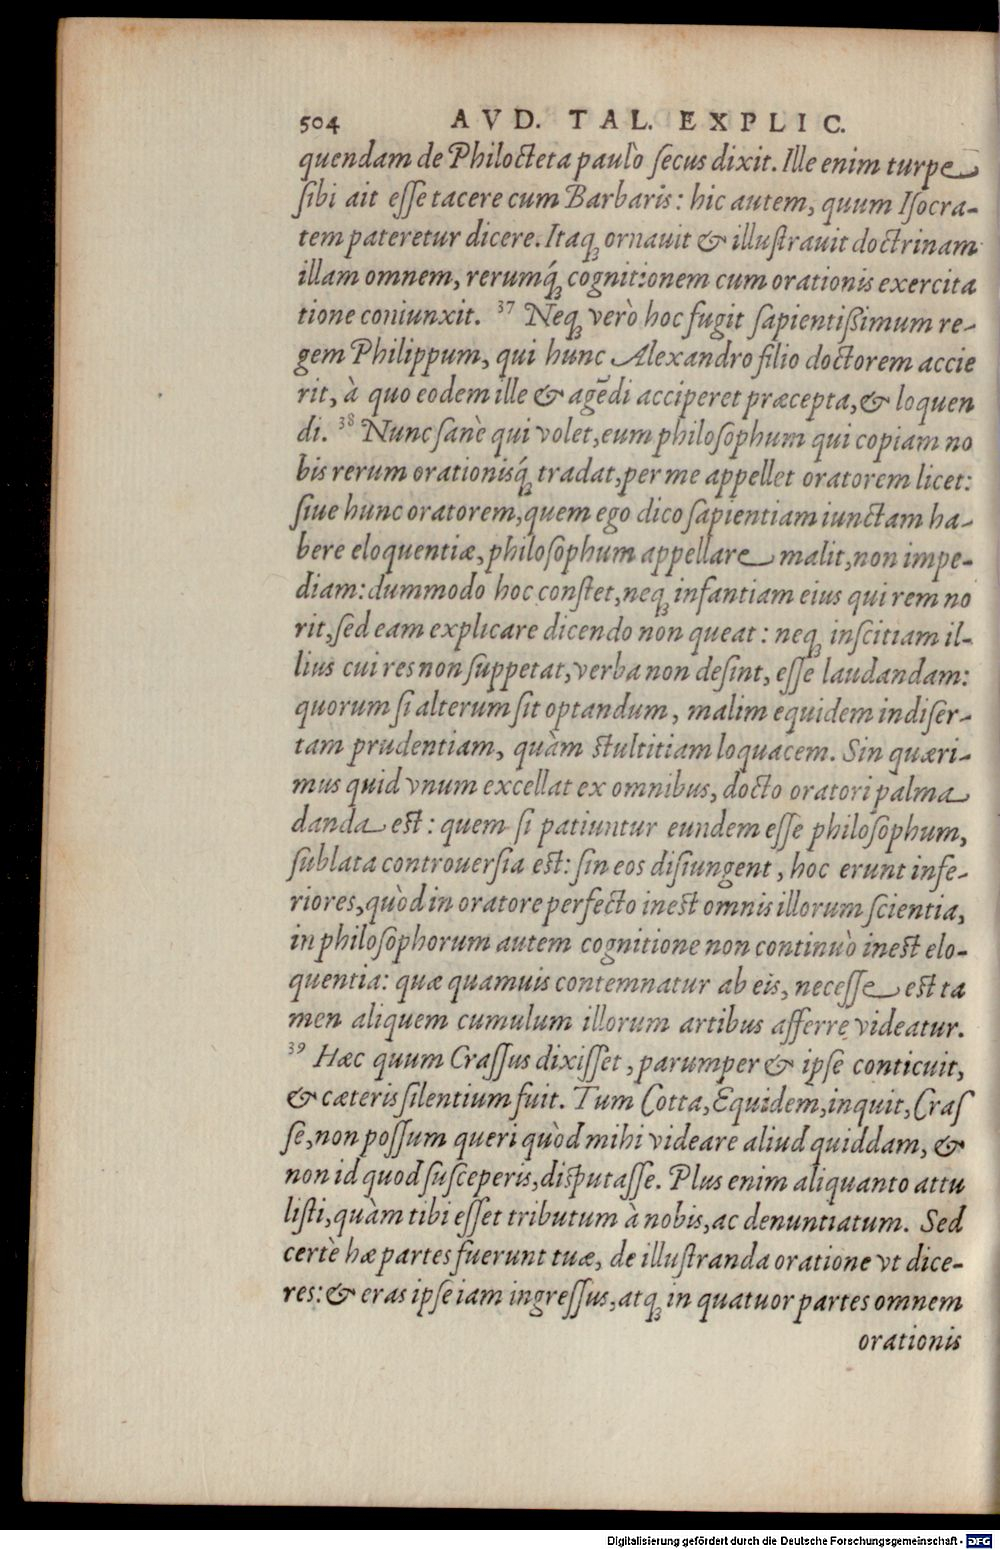 504 AVD. TAL. EXPLIC.
quendam de Philocteta paulò secus dixit. Ille enim turpe
sibi ait esse tacere cum Barbaris: hic autem, quum Isocra-
tem pateretur dicere. Itaq; ornauit & illustrauit doctrinam
illam omnem, rerumq́; cognitionem cum orationis exercita
tione coniunxit. 37 Neq; verò hoc fugit sapientißimum re-
gem Philippum, qui hunc Alexandro filio doctorem accie
rit, à quo eodem ille & agēdi acciperet præcepta, & loquen
di. 38 Nunc sanè qui volet, eum philosophum qui copiam no
bis rerum orationisq́; tradat, per me appellet oratorem licet:
siue hunc oratorem, quem ego dico sapientiam iunctam ha-
bere eloquentiæ, philosophum appellare malit, non impe-
diam: dummodo hoc constet, neq; infantiam eius qui rem no
rit, sed eam explicare dicendo non queat: neq; inscitiam il-
lius cui res non suppetat, verba non desint, esse laudandam:
quorum si alterum sit optandum, malim equidem indiser-
tam prudentiam, quàm stultitiam loquacem. Sin quæri-
mus quid vnum excellat ex omnibus, docto oratori palma
danda est: quem si patiuntur eundem esse philosophum,
sublata controuersia est: sin eos disiungent, hoc erunt infe-
riores, quòd in oratore perfecto inest omnis illorum scientia,
in philosophorum autem cognitione non continuò inest elo-
quentia: quæ quamuis contemnatur ab eis, necesse est ta
men aliquem cumulum illorum artibus afferre videatur.
39 Hæc quum Crassus dixisset, parumper & ipse conticuit,
& cæteris silentium fuit. Tum Cotta, Equidem, inquit, Cras
se, non possum queri quòd mihi videare aliud quiddam, &
non id quod susceperis, disputasse. Plus enim aliquanto attu
listi, quàm tibi esset tributum à nobis, ac denuntiatum. Sed
certè hæ partes fuerunt tuæ, de illustranda oratione vt dice-
res: & eras ipse iam ingressus, atq; in quatuor partes omnem
orationis
Digitalisierung gefördert durch die Deutsche Forschungsgemeinschaft - DFG